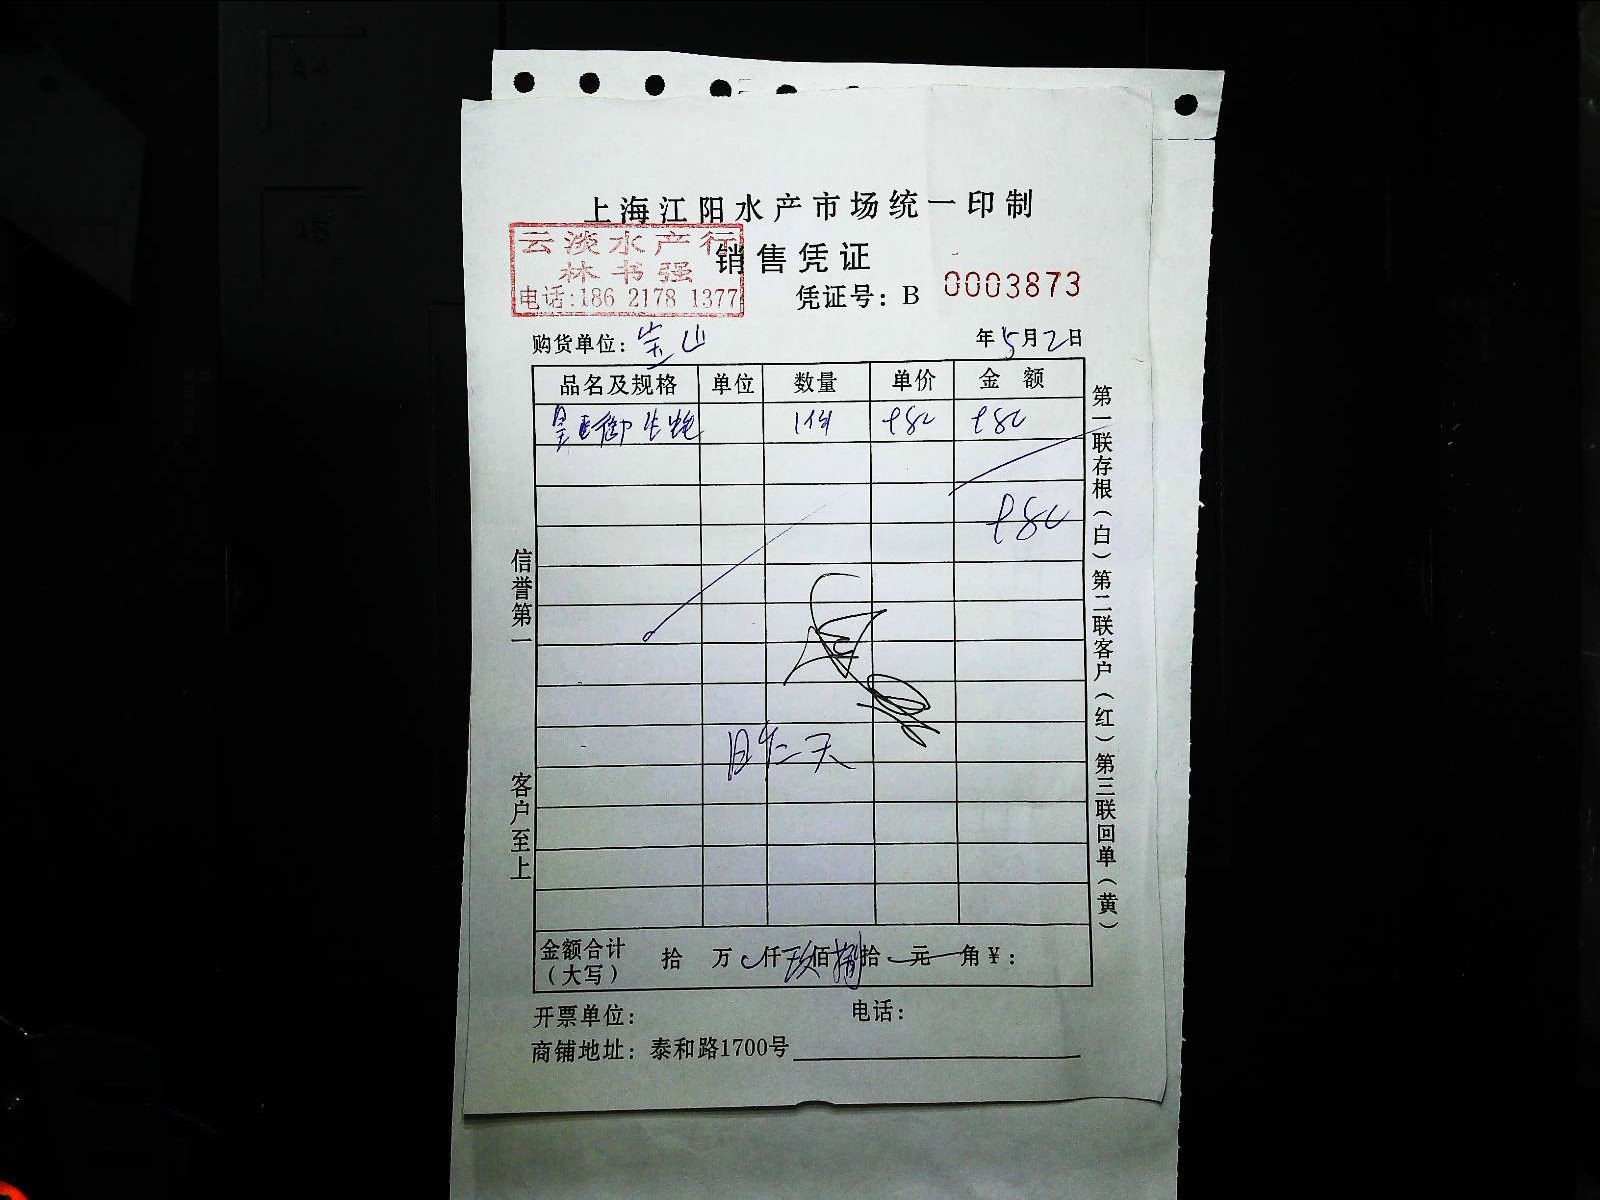 A4
A5
上海江阳水产市场统一印制
云淡水产行
林书强
电话:186 2178 1377
销售凭证
凭证号：B 0003873
购货单位：宝山 年5月2日
品名及规格 单位 数量 单价 金额
1件 980 980
980
信誉第一
客户至上
第一联存根(白)第二联客户(红)第三联回单(黄)
金额合计(大写) 拾 万 仟玖佰捌拾 元 角¥：
开票单位： 电话：
商铺地址：泰和路1700号